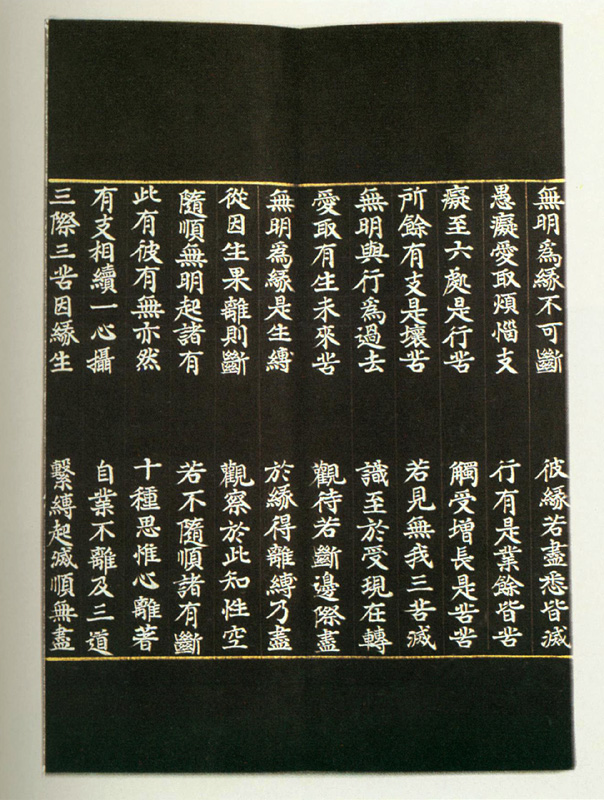 無明爲緣不可斷　彼緣若盡悉皆滅
愚癡愛取煩惱支　行有是業餘皆苦
癡至六處是行苦　觸受增長是苦苦
所餘有支是壞苦　若見無我三苦滅
無明與行爲過去　識至於受現在轉
愛取有生未來苦　觀待若斷邊際盡
無明爲緣是生縛　於緣得離縛乃盡
從因生果離則斷　觀察於此知性空
隨順無明起諸有　若不隨順諸有斷
此有彼有無亦然　十種思惟心離著
有支相續一心攝　自業不離及三道
三際三苦因緣生　繫縛起滅順無盡